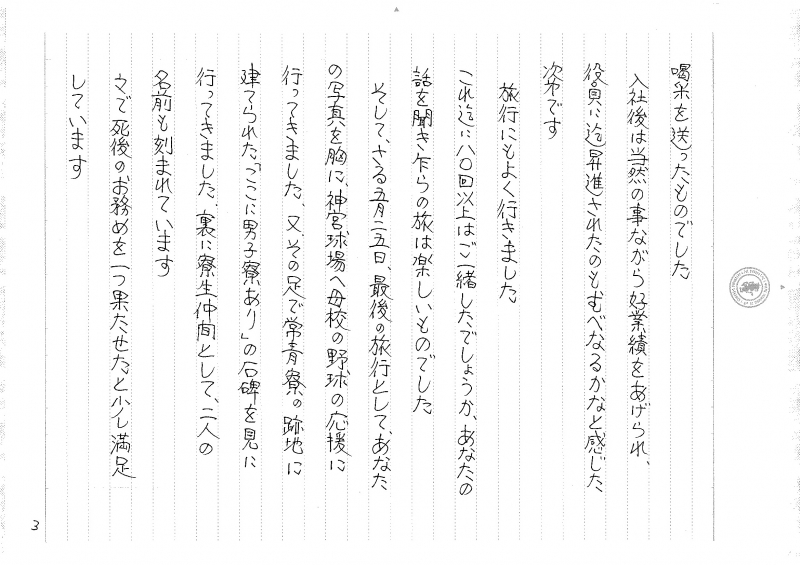 喝采を送ったものでした
入社後は当然の事ながら好業績をあげられ、
役員に迄昇進されたのもむべなるかなと感じた
次第です
旅行にもよく行きました
これ迄に八〇回以上はご一緒したでしょうか、あなたの
話を聞き乍らの旅は楽しいものでした
そして、さる五月二五日、最後の旅行として、あなた
の写真を胸に、神宮球場へ母校の野球の応援に
行ってきました、又、その足で常青寮の跡地に
建てられた「ここに男子寮あり」の石碑を見に
行ってきました、裏に寮生仲間として、二人の
名前も刻まれています
ママで死後のお務めを一つ果たせた、と少し満足
しています
3